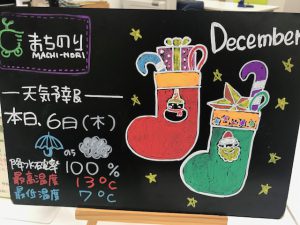 まちのり
MACHI-NORI
December
天気予報
本日、6日(木)
のち
降水確率 100%
最高温度 13℃
最低温度 7℃